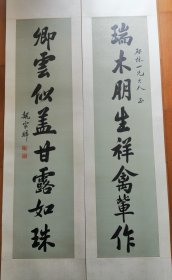 瑞木朋生祥禽輩作
卿雲似蓋甘露如珠